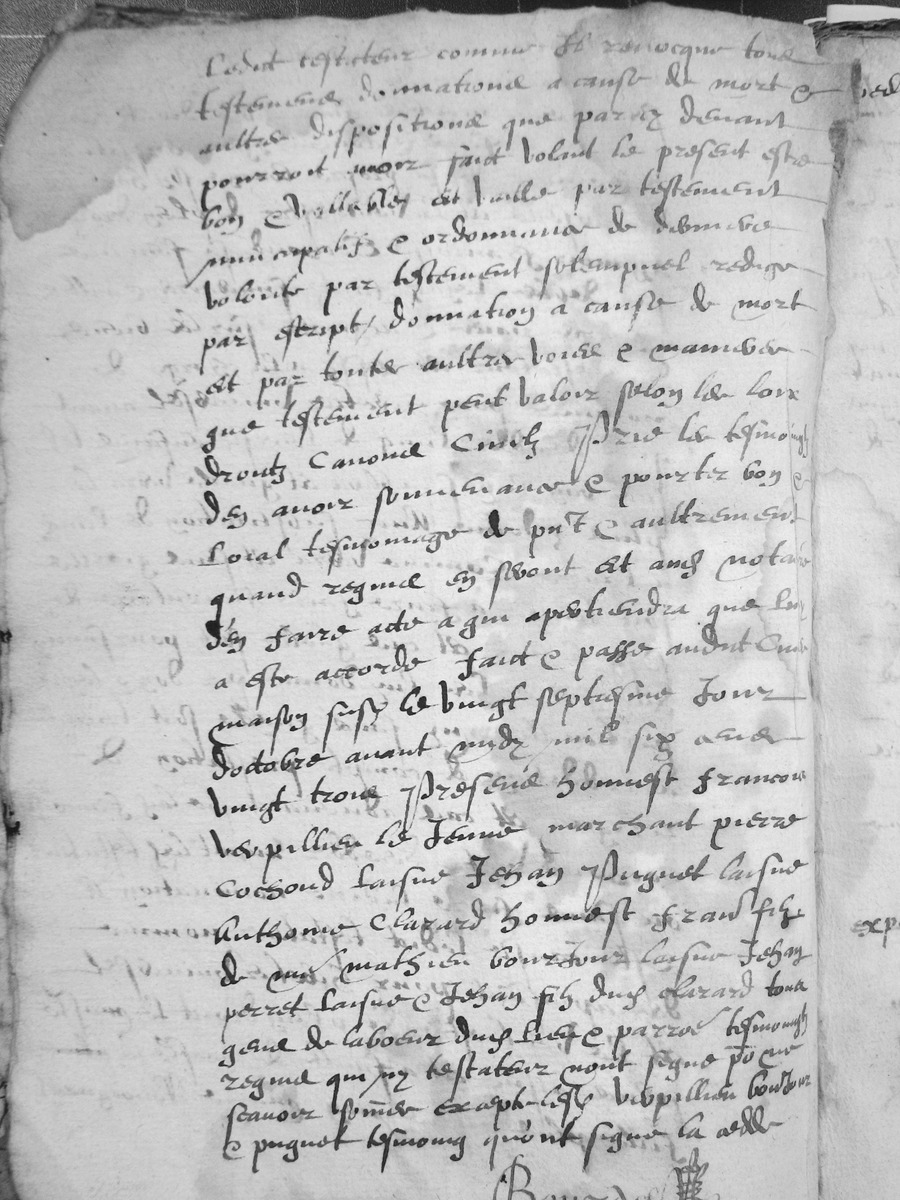 Ledict testateur comme Il revocque tous
testemens donnations a cause de mort &
aultres dispositions que par cy devant
pourroit avoir faict volant le present estre
bon & vallable et vaille par testement
nuncupatifz & ordonnance de derniere
volonte par testement solempnel redige
par escript, donnation a cause de mort
et par toutes aultres voies & manieres
que testement peult valoir selon les loix
droitz Canons Civilz Prie les tesmoingz
den avoir souvenance & pourter bon &
Loial tesmoinage de pnt & aultrement
quand requis en seront et aud notaire
den faire acte a qui apertiendra que luy
a este accorde faict & passe audict
maison susd le vingt septiesme Jour
doctobre avant midy mil six cens
vingt trois Presens honnest Francois
verpillieu le Jeune marchant pierre
Cochond laisne Jehan Puguet laisne
Anthoine Clazard honnest Frans filz
de me mathieu bourJour laisne Jehan
perret laisne & Jehan filz dud clazard tous
gens de laboeur dud lieu & parroe tesmoingz
requis qui ny testateur nont signe po ne
scavoir sommes excepte lesd verpillieu bourJour
& puguet tesmoing quont signe la cedde